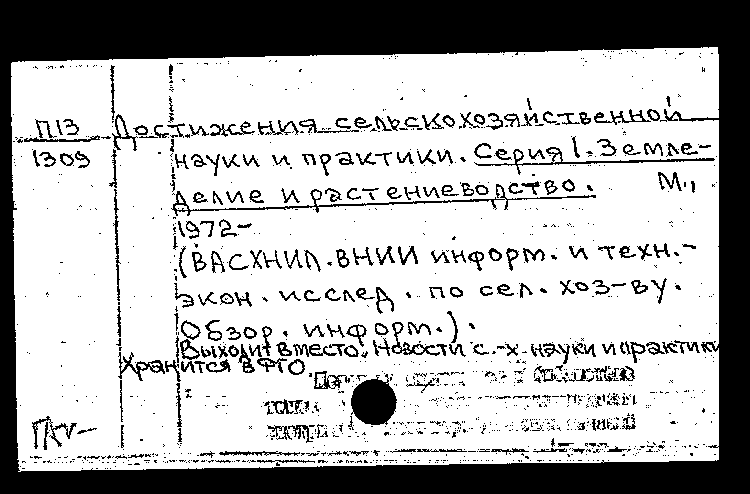 П13
1309
Достижения сельскохозяйственной
науки и практики. Серия 1. Земле-
делие и растениеводство. М.,
1972-
(ВАСХНИЛ. ВНИИ информ. и техн.-
экон. исслед. по сел. хоз-ву.
Обзор. информ.).
Выходит вместо: Новости с.-х. науки и практики
Хранится в ФТО.
библиотеке